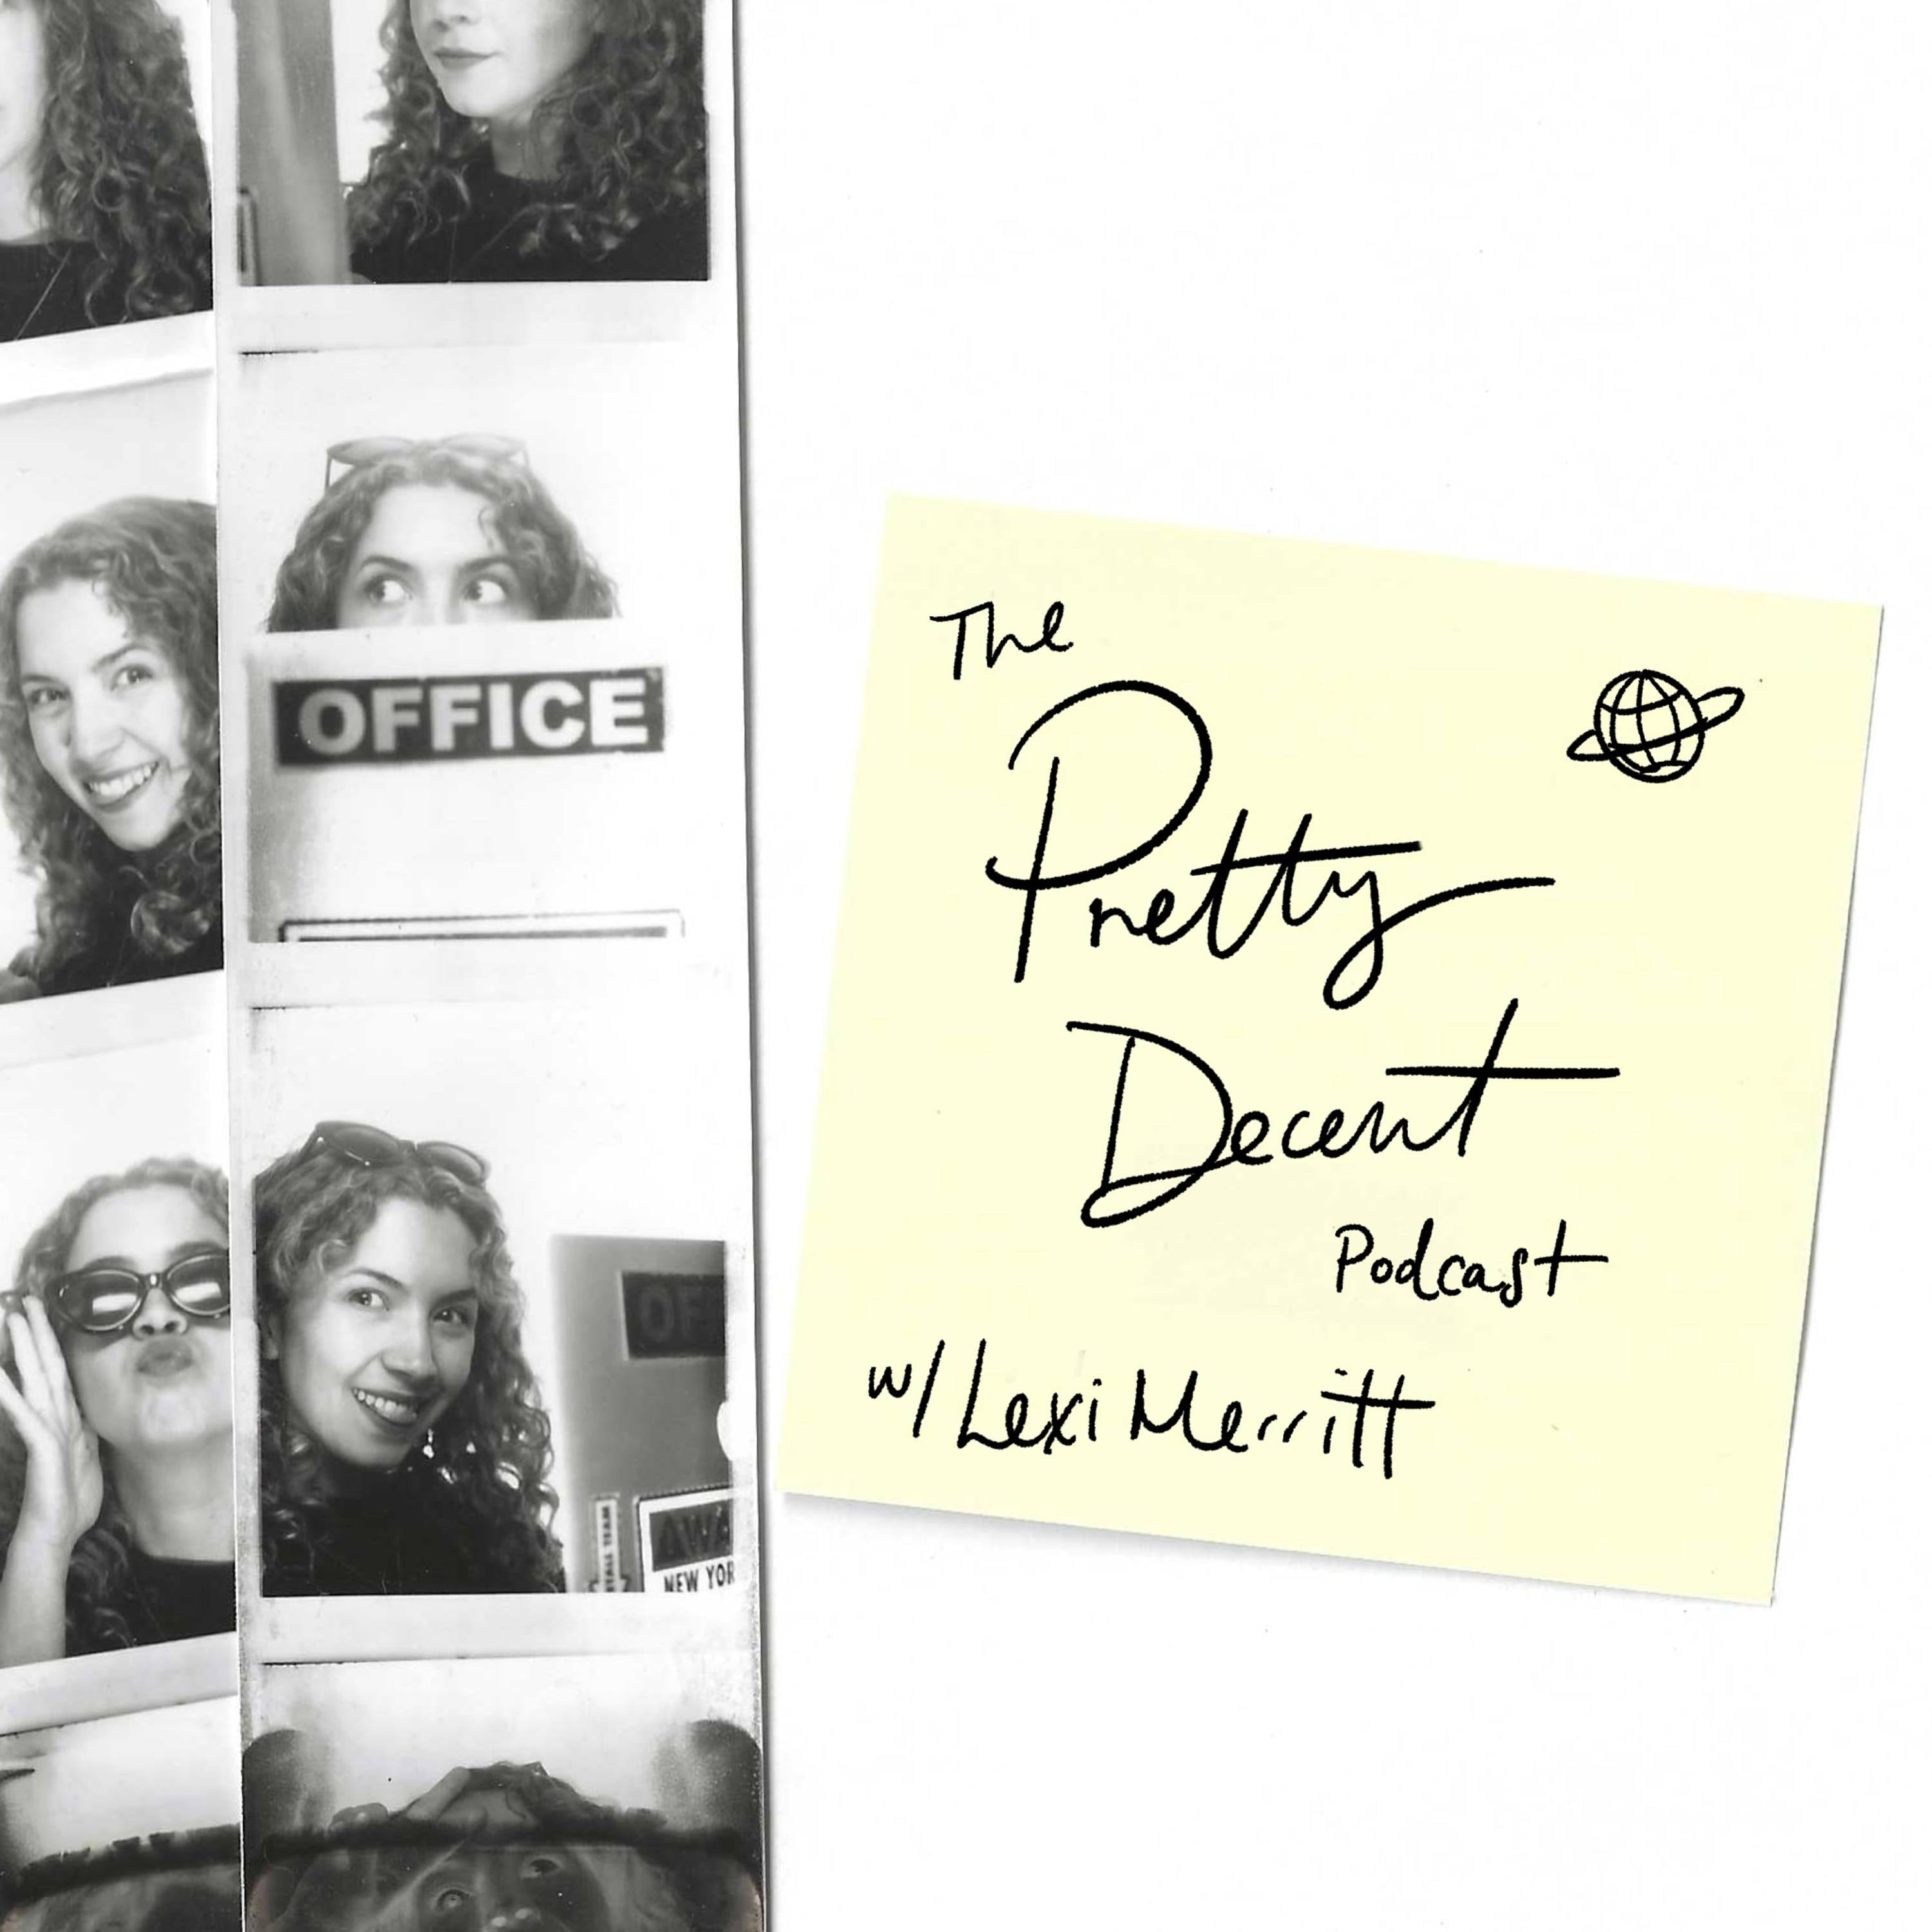 OFFICE
OF
NEW YOR
The
Pretty
Decent
Podcast
w/ Lexi Merritt